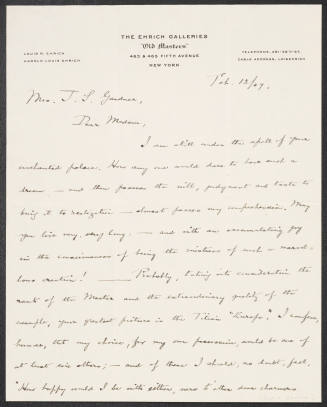 THE EHRICH GALLERIES
"Old Masters"
463 & 465 FIFTH AVENUE
NEW YORK
LOUIS R. EHRICH
HAROLD LOUIS EHRICH
CABLE ADDRESS,
Feb. 12/09.
Mrs. J. L. Gardner,
Dear Madame,
I am still under the spell of your
enchanted palace. How any one would dare to have such a
dream — and then possess the will, judgment and taste to
bring it to realization — almost passes my comprehension. May
you live very, very long — and with an accumulating joy
in the consciousness of being the creatress of such a marvel-
lous creation! — Probably, taking into consideration the
rank of the Master and the extraordinary quality of the
example, your greatest picture is the Titian "Europa". I confess,
however, that my choice, for my own possession, would be one of
at least six others; — and of these I should, no doubt, feel,
"How happy would I be with either, were t'other dear charmers